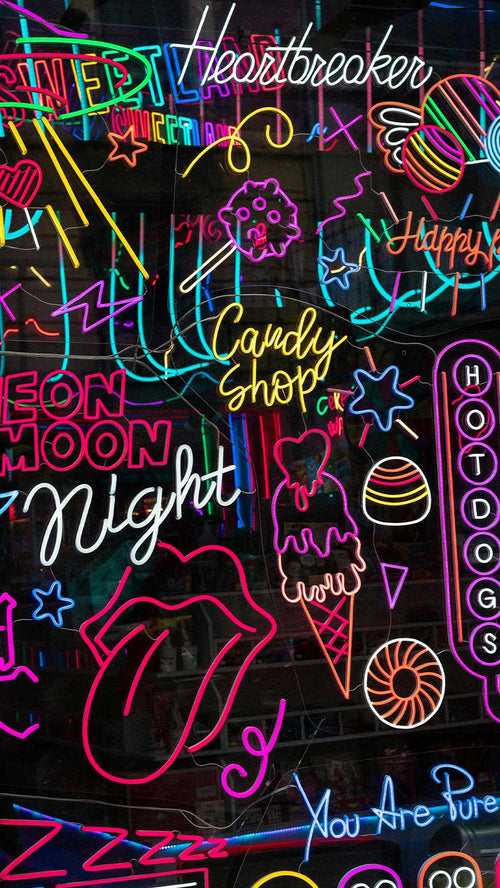 SWEETLAND
Heartbreaker
SWEETLAND
Happy
Candy
Shop
EON
MOON
Night
HOTDOGS
You Are Pure
ZZZZZ